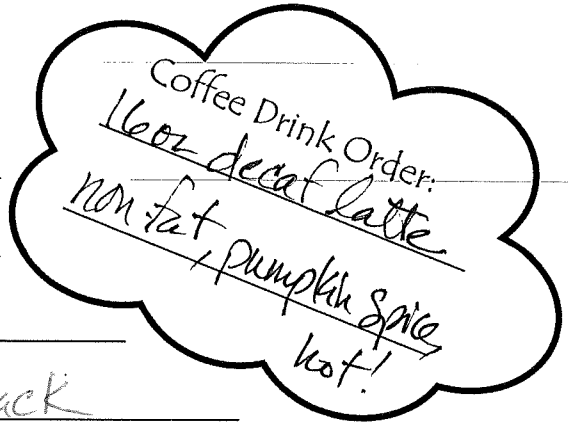 Coffee Drink Order:
16oz decaf latte
non-fat, pumpkin spice,
hot!
ack